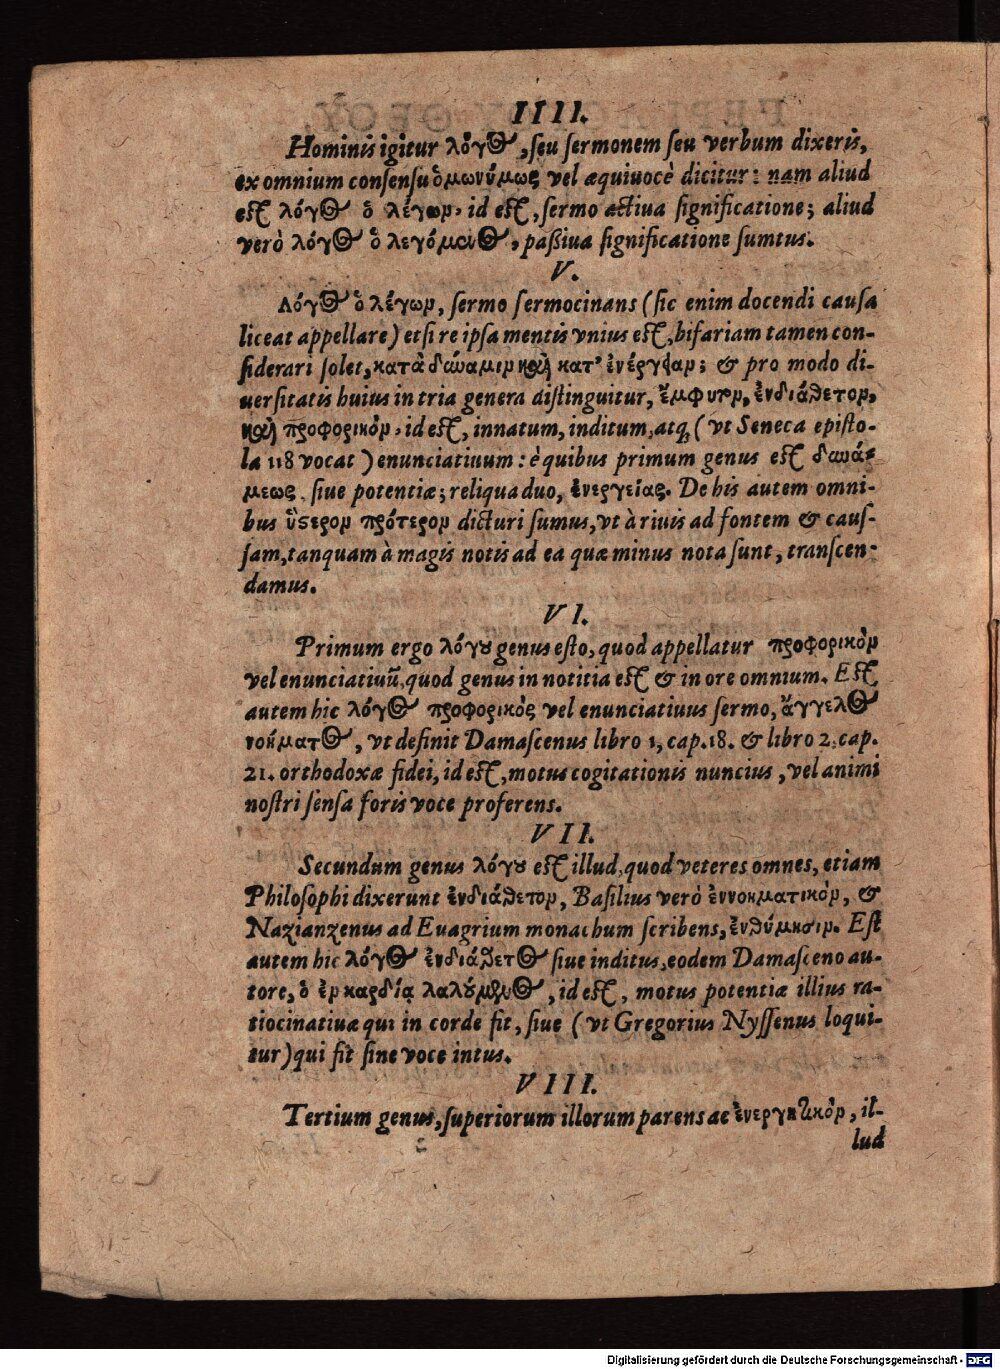 IIII.
Hominis igitur λόγος, seu sermonem seu verbum dixeris,
ex omnium consensu ὁμωνύμως vel æquiuocè dicitur: nam aliud
est λόγος ὁ λέγων, id est, sermo actiua significatione; aliud
verò λόγος ὁ λεγόμενος, paßiua significatione sumtus.
V.
Λόγος ὁ λέγων, sermo sermocinans (sic enim docendi causa
liceat appellare) etsi re ipsa mentis vnius est, bifariam tamen con-
siderari solet, κατὰ δύναμιν καὶ κατ' ἐνέργειαν; & pro modo di-
uersitatis huius in tria genera distinguitur, ἔμφυτον, ἐνδιάθετον,
καὶ προφορικὸν, id est, innatum, inditum, atq; (vt Seneca episto-
la 118 vocat) enunciatiuum: è quibus primum genus est δυνά-
μεως, siue potentiæ; reliqua duo, ἐνεργείας. De his autem omni-
bus ὕστερον πρότερον dicturi sumus, vt à riuis ad fontem & caus-
sam, tanquam à magis notis ad ea quæ minus nota sunt, transcen-
damus.
VI.
Primum ergo λόγου genus esto, quod appellatur προφορικὸν
vel enunciatiuū, quod genus in notitia est & in ore omnium. Est
autem hic λόγος προφορικὸς vel enunciatiuus sermo, ἄγγελος
νοήματος, vt definit Damascenus libro 1, cap. 18. & libro 2, cap.
21. orthodoxæ fidei, id est, motus cogitationis nuncius, vel animi
nostri sensa foris voce proferens.
VII.
Secundum genus λόγου est illud, quod veteres omnes, etiam
Philosophi dixerunt ἐνδιάθετον, Basilius verò ἐννοηματικὸν, &
Nazianzenus ad Euagrium monachum scribens, ἐνθύμησιν. Est
autem hic λόγος ἐνδιάθετος siue inditus, eodem Damasceno au-
tore, ὁ ἐν καρδίᾳ λαλούμενος, id est, motus potentiæ illius ra-
tiocinatiuæ qui in corde fit, siue (vt Gregorius Nyssenus loqui-
tur) qui fit sine voce intus.
VIII.
Tertium genus, superiorum illorum parens ac ἐνεργητικὸν, il-
lud
Digitalisierung gefördert durch die Deutsche Forschungsgemeinschaft - DFG